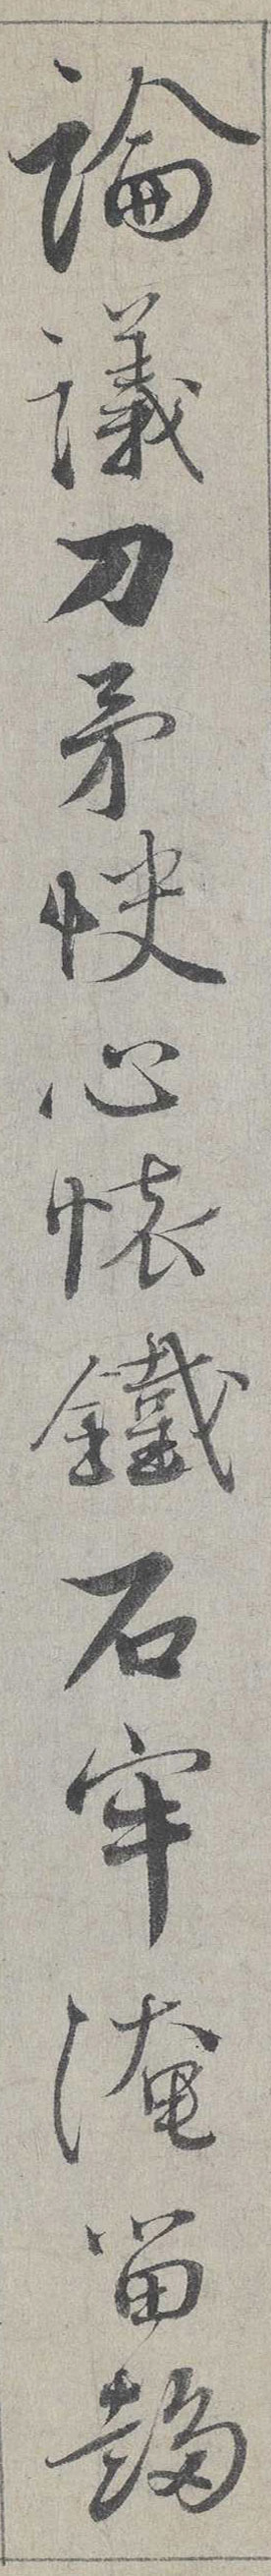 論議刀矛快心懐鐵石牢淹留趨